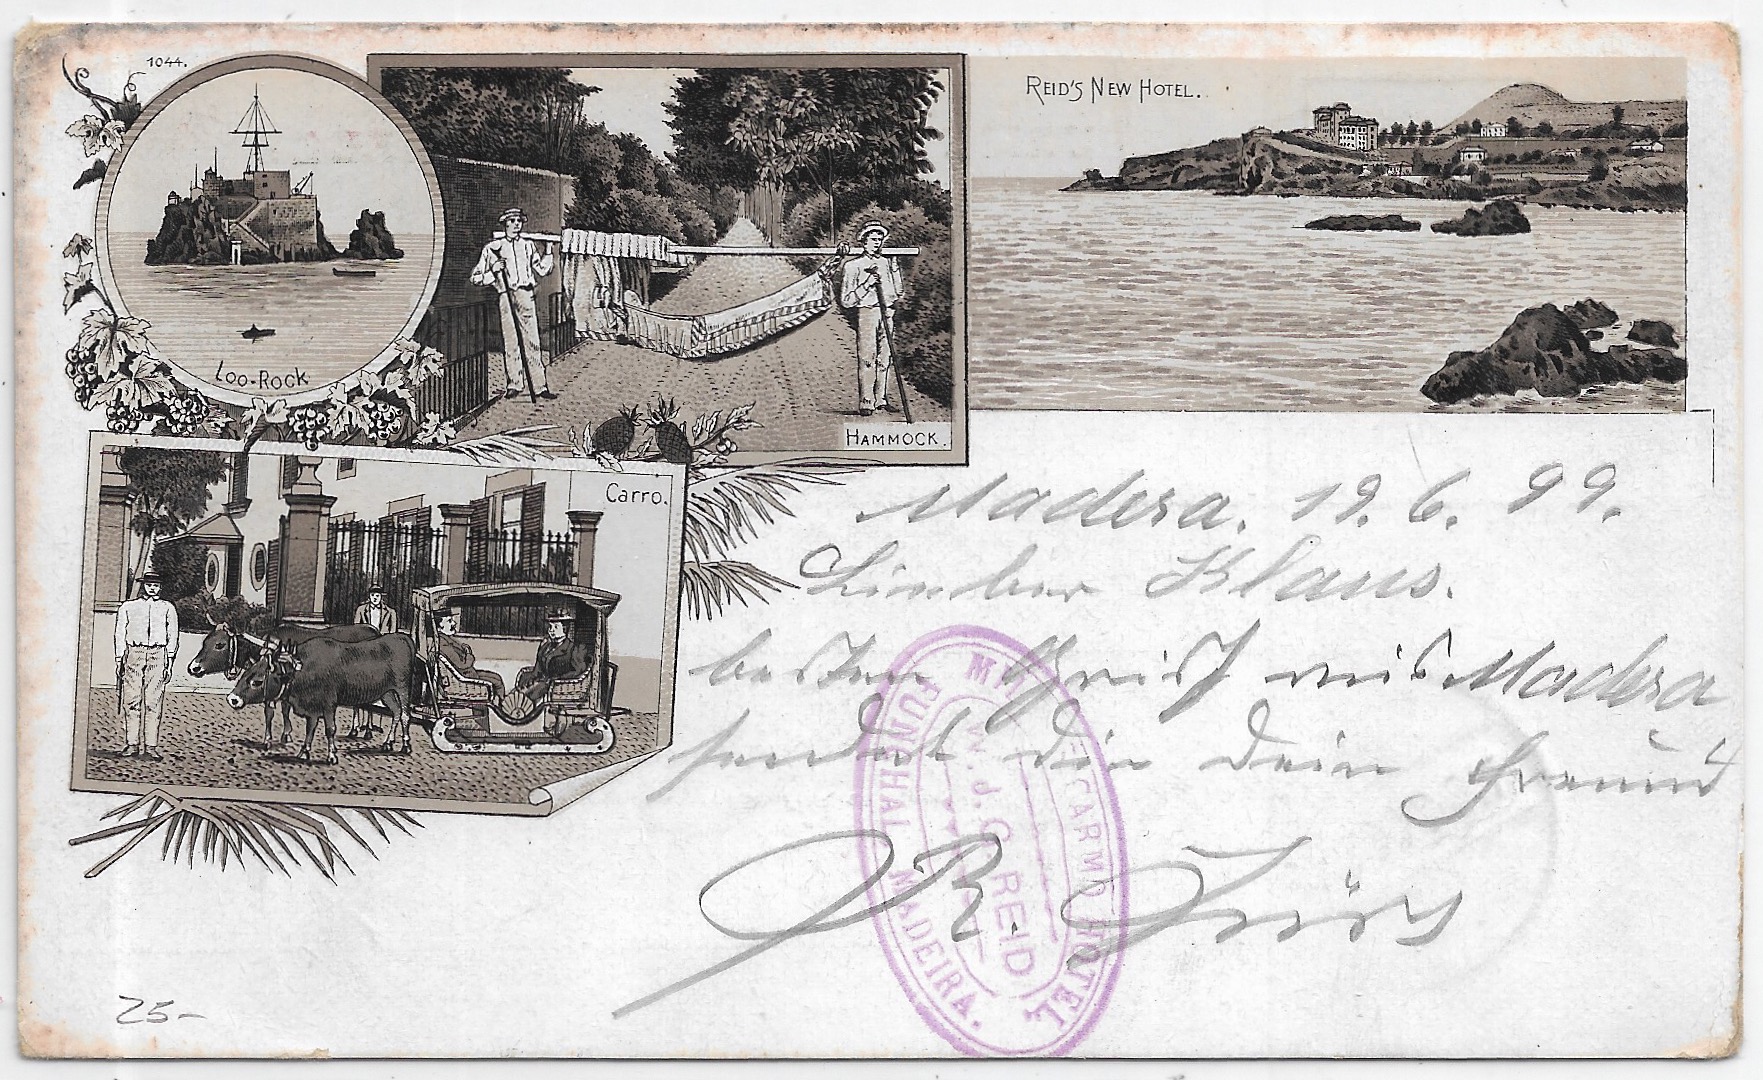 1044.
LOO-ROCK
HAMMOCK.
REID'S NEW HOTEL.
Carro.
Madera. 19. 6. 99.
Lieber Klaus.
besten Gruß aus Madera
sendet dir dein Freund
R.
CARMO HOTEL
W. d. G. REID
FUNCHAL MADEIRA.
25-